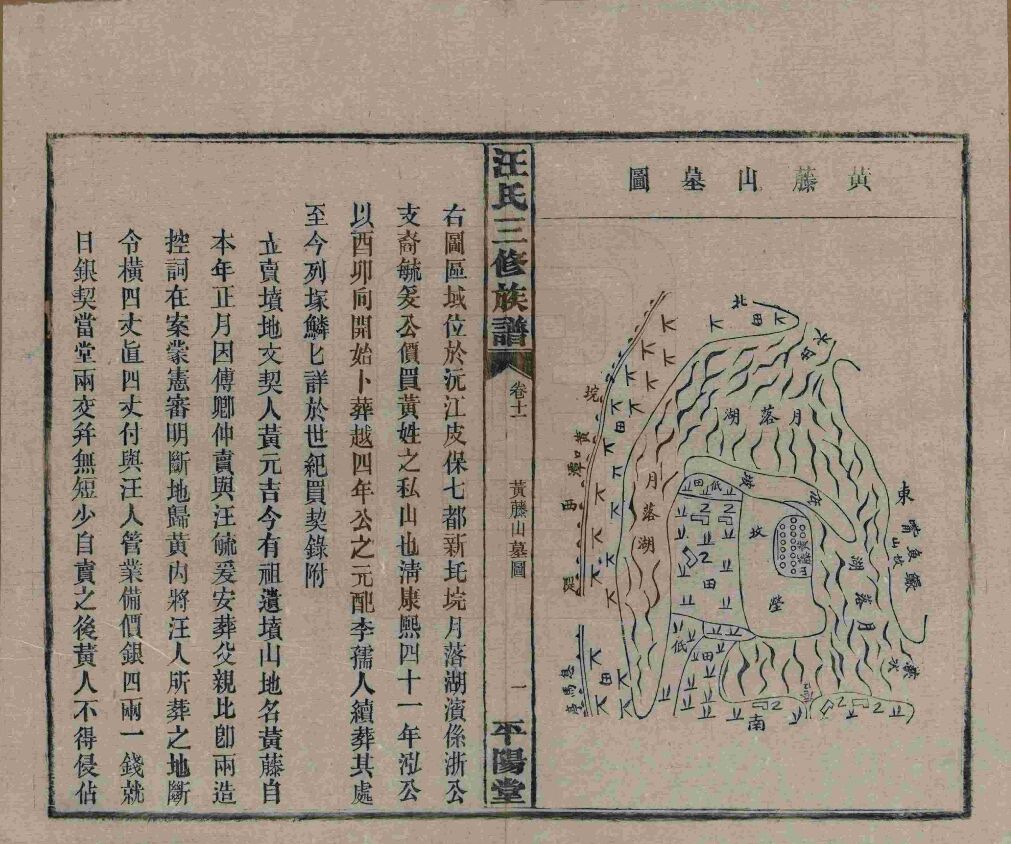 黃藤山墓圖
北
田
水
田
月落湖
月落湖
垸
黃口潭
西
堤
東
月落湖
低
田
低
田
塋
南
汪氏三修族譜
卷十一
黃藤山墓圖
一
平陽堂
右圖區域位於沅江皮保七都新圫垸月落湖濱係浙公
支裔毓爰公價買黃姓之私山也淸康熙四十一年泓公
以酉卯向開始卜葬越四年公之元配李孺人續葬其處
至今列塚鱗匕詳於世紀買契錄附
立賣墳地文契人黃元吉今有祖遺墳山地名黃藤自
本年正月因傅卿仲賣與汪毓爰安葬父親比卽兩造
控詞在案蒙憲審明斷地歸黃內將汪人所葬之地斷
令橫四丈直四丈付與汪人管業備價銀四兩一錢就
日銀契當堂兩交幷無短少自賣之後黃人不得侵佔